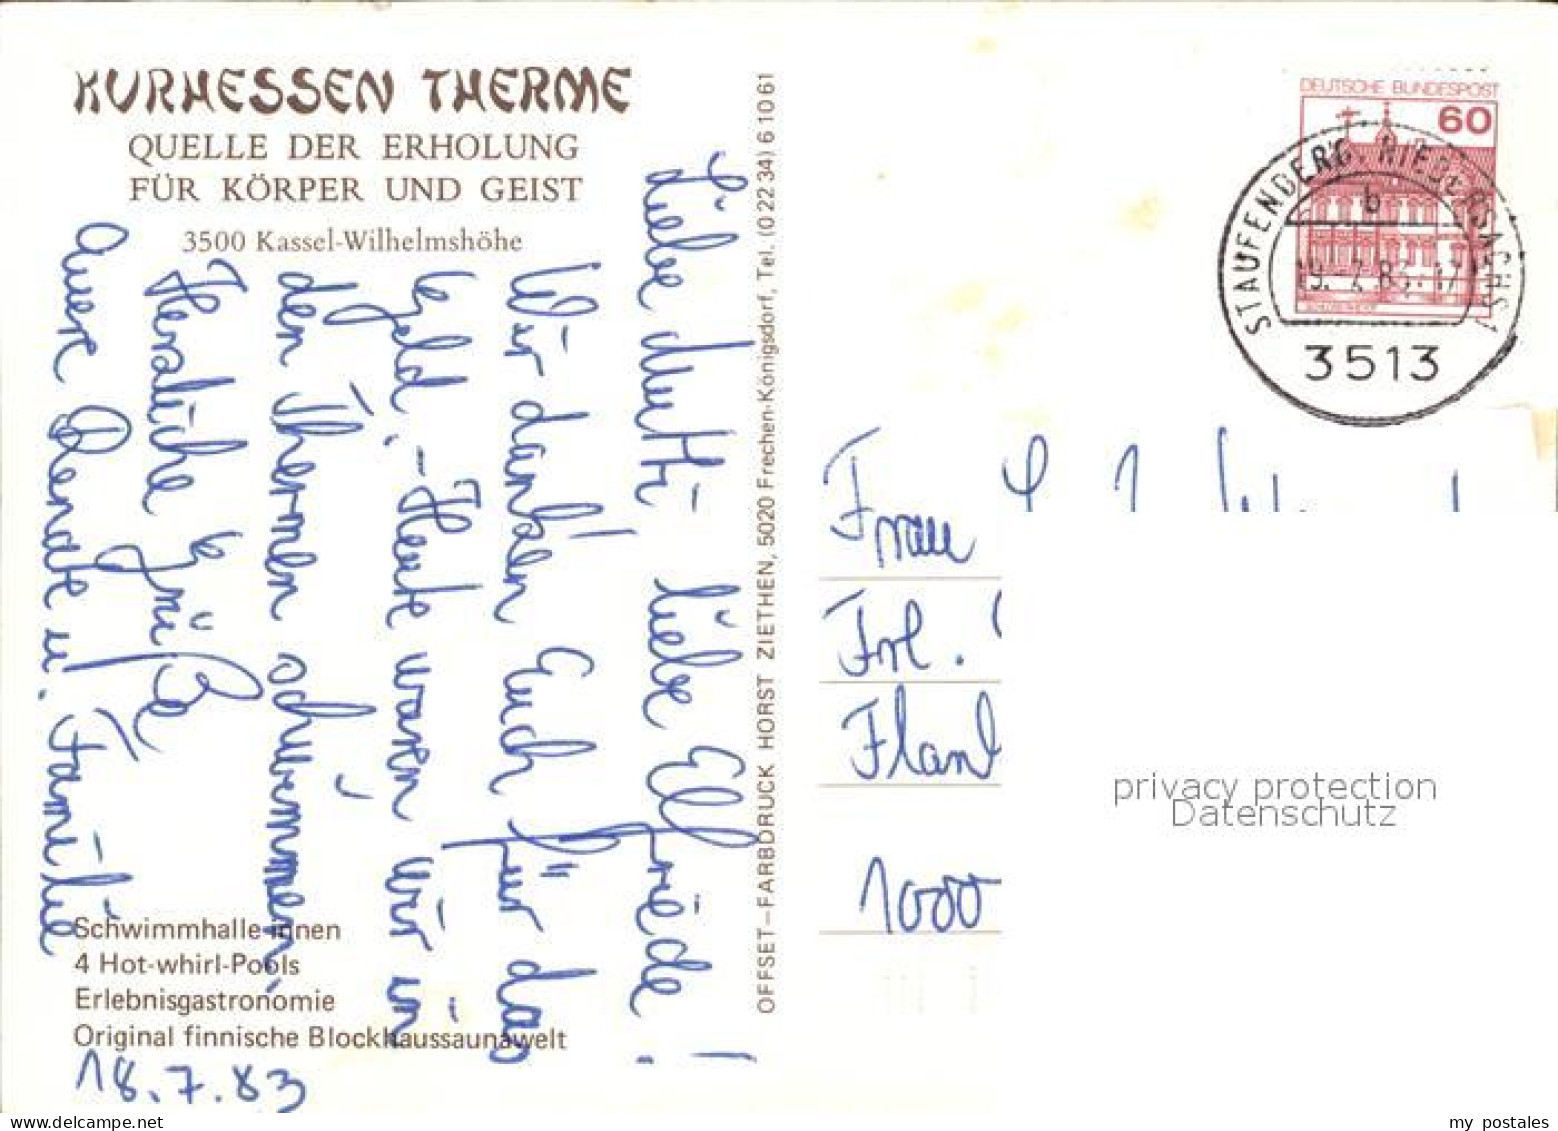 KURHESSEN THERME
QUELLE DER ERHOLUNG
FÜR KÖRPER UND GEIST
3500 Kassel-Wilhelmshöhe
Liebe Mutti - liebe Elfriede!
Wir danken Euch für das
Geld. - Heute waren wir in
den Thermen schwimmen.
Herzliche Grüße
Eure Bende u. Familie
Schwimmhalle innen
4 Hot-whirl-Pools
Erlebnisgastronomie
Original finnische Blockhaussaunawelt
18.7.83
OFFSET-FARBDRUCK HORST ZIETHEN, 5020 Frechen-Königsdorf, Tel. (0 22 34) 6 10 61
DEUTSCHE BUNDESPOST
60
STAUFENBERG, NIEDERSACHS 1
b
19. 7. 83-17
3513
Frau
Frl.
1000
privacy protection
Datenschutz
my postales